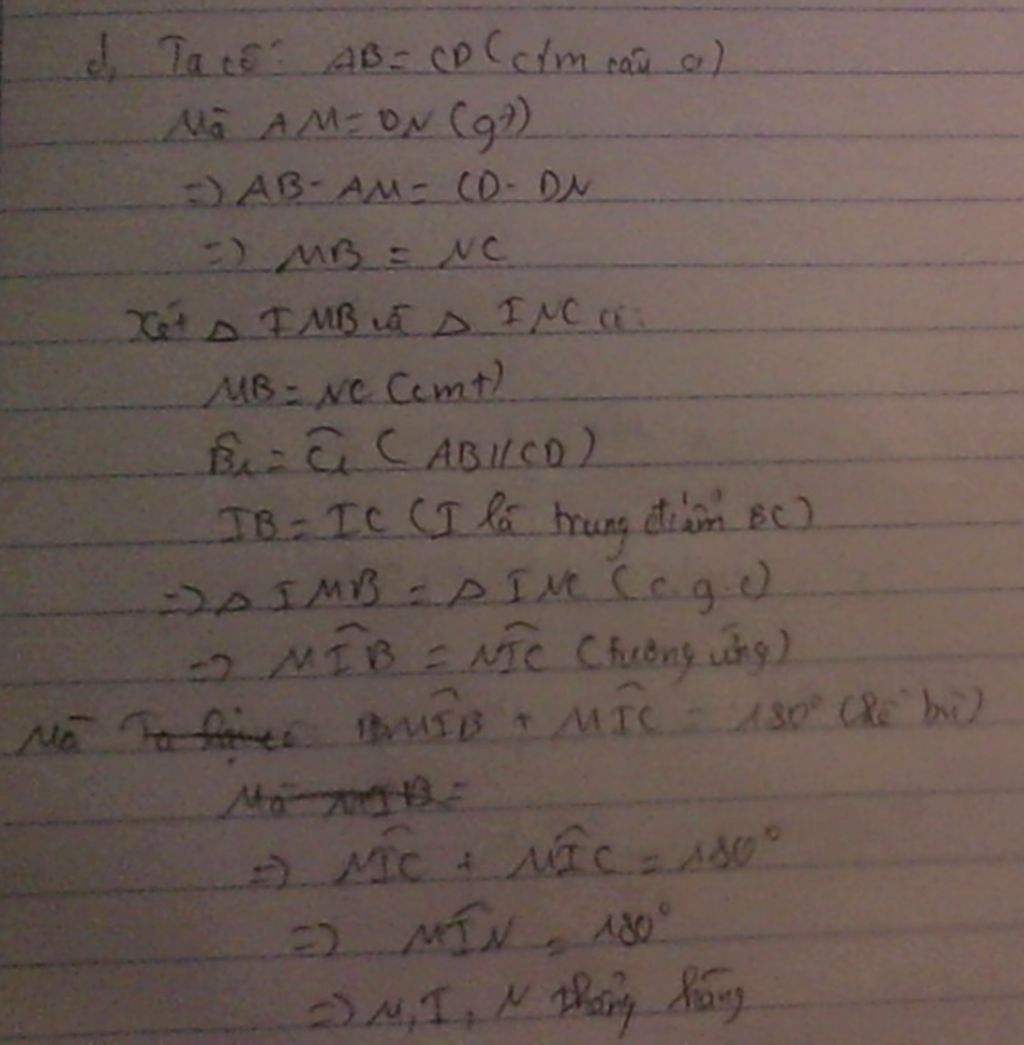 d, Ta có: AB = CD (c/m câu a)
Mà AM = DN (gt)
=> AB - AM = CD - DN
=> MB = NC
Xét △ IMB và △ INC có:
MB = NC (cmt)
B̂₁ = Ĉ₁ (AB // CD)
IB = IC (I là trung điểm BC)
=> △ IMB = △ INC (c.g.c)
=> MÎB = NÎC (tương ứng)
Mà MÎB + MÎC = 180° (kề bù)
=> NÎC + MÎC = 180°
=> MÎN = 180°
=> M, I, N thẳng hàng